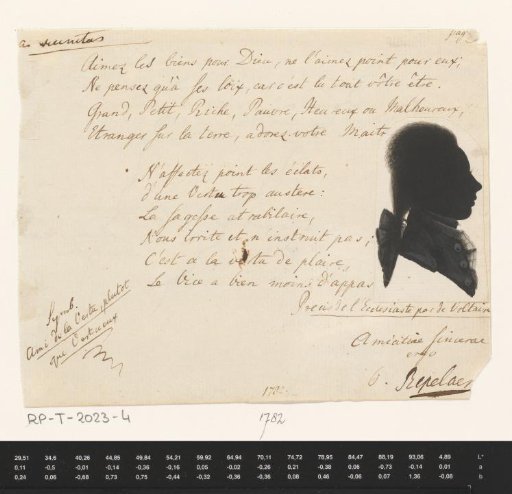 pag:
Aimez les biens pour Dieu, ne l'aimez point pour eux;
Ne pensez qu'à ses loix, car c'est la tout vôtre être.
Grand, Petit, Riche, Pauvre, Heureux ou Malheureux,
Etranger sur la terre, adorez votre Maitr
N'affectez point les éclats,
d'une Vertu trop austere:
La sagesse atrabilaire,
Nous irrite et n'instruit pas;
C'est a la vertu de plaire,
Le Vice a bien moins d'appas
Precis de l'Ecclesiaste par de Voltaire
Symb.
Ami de la Vertu, plutot
que Vertueux
Amicitiae sincerae
ergo
Repelaer
1782
RP-T-2023-4
1782
29,51 34,6 40,26 44,85 49,84 54,21 59,92 64,94 70,11 74,72 78,95 84,47 88,19 93,06 4,89 L*
0,11 -0,5 -0,01 -0,14 -0,36 -0,16 0,05 -0,02 -0,26 0,21 -0,38 0,06 -0,73 -0,14 0,01 a
0,24 0,06 -0,68 0,73 0,75 -0,44 -0,32 -0,36 -0,36 0,08 0,46 -0,06 0,07 1,36 -0,06 b